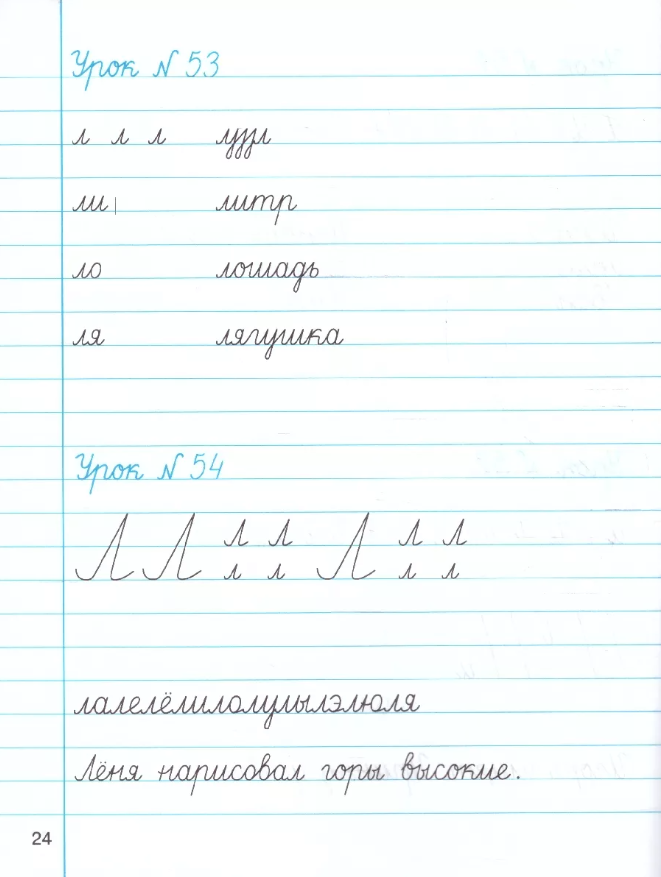 Урок № 53
л л л
ли литр
ло лошадь
ля лягушка
Урок № 54
Л Л Л Л Л Л Л
л л л л
лалелёлилолулылэлюля
Лёня нарисовал горы высокие.
24